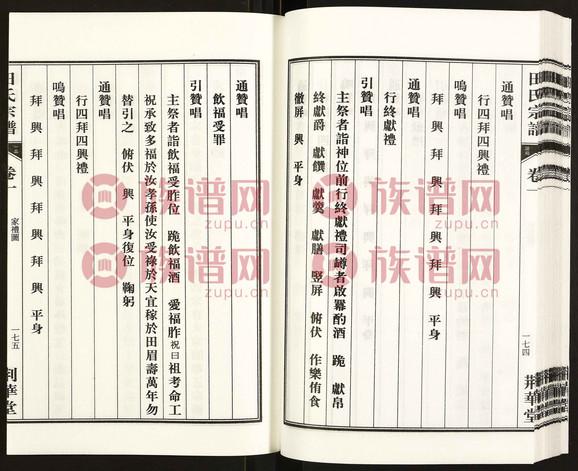 田氏宗譜
卷一
一七四
荆華堂
通贊唱
行四拜四興禮
鳴贊唱
拜 興 拜 興 拜 興 拜 興 平身
通贊唱
行終獻禮
引贊唱
主祭者詣神位前行終獻禮司罇者啟羃酌酒 跪 獻帛
終獻爵 獻饌 獻羹 獻膳 豎屏 俯伏 作樂侑食
徹屏 興 平身
通贊唱
飲福受罪
引贊唱
主祭者詣飲福受胙位 跪飲福酒 愛福胙祝曰祖考命工
祝承致多福於汝孝孫使汝受祿於天宜稼於田眉壽萬年勿
替引之 俯伏 興 平身復位 鞠躬
通贊唱
行四拜四興禮
鳴贊唱
拜 興 拜 興 拜 興 拜 興 平身
田氏宗譜
卷一
家禮圖
一七五
荆華堂
族谱网
zupu.cn
族谱网
zupu.cn
族谱网
zupu.cn
族谱网
zupu.cn